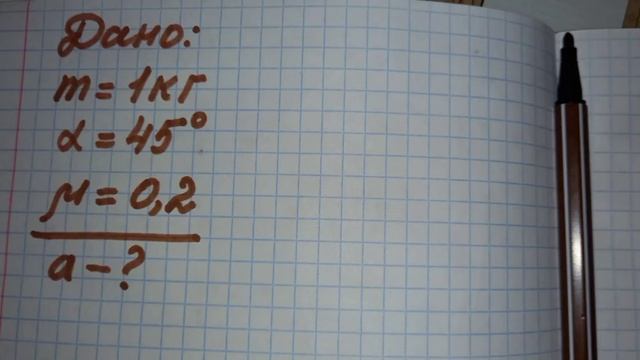 Дано:
m = 1кг
α = 45°
μ = 0,2
a - ?